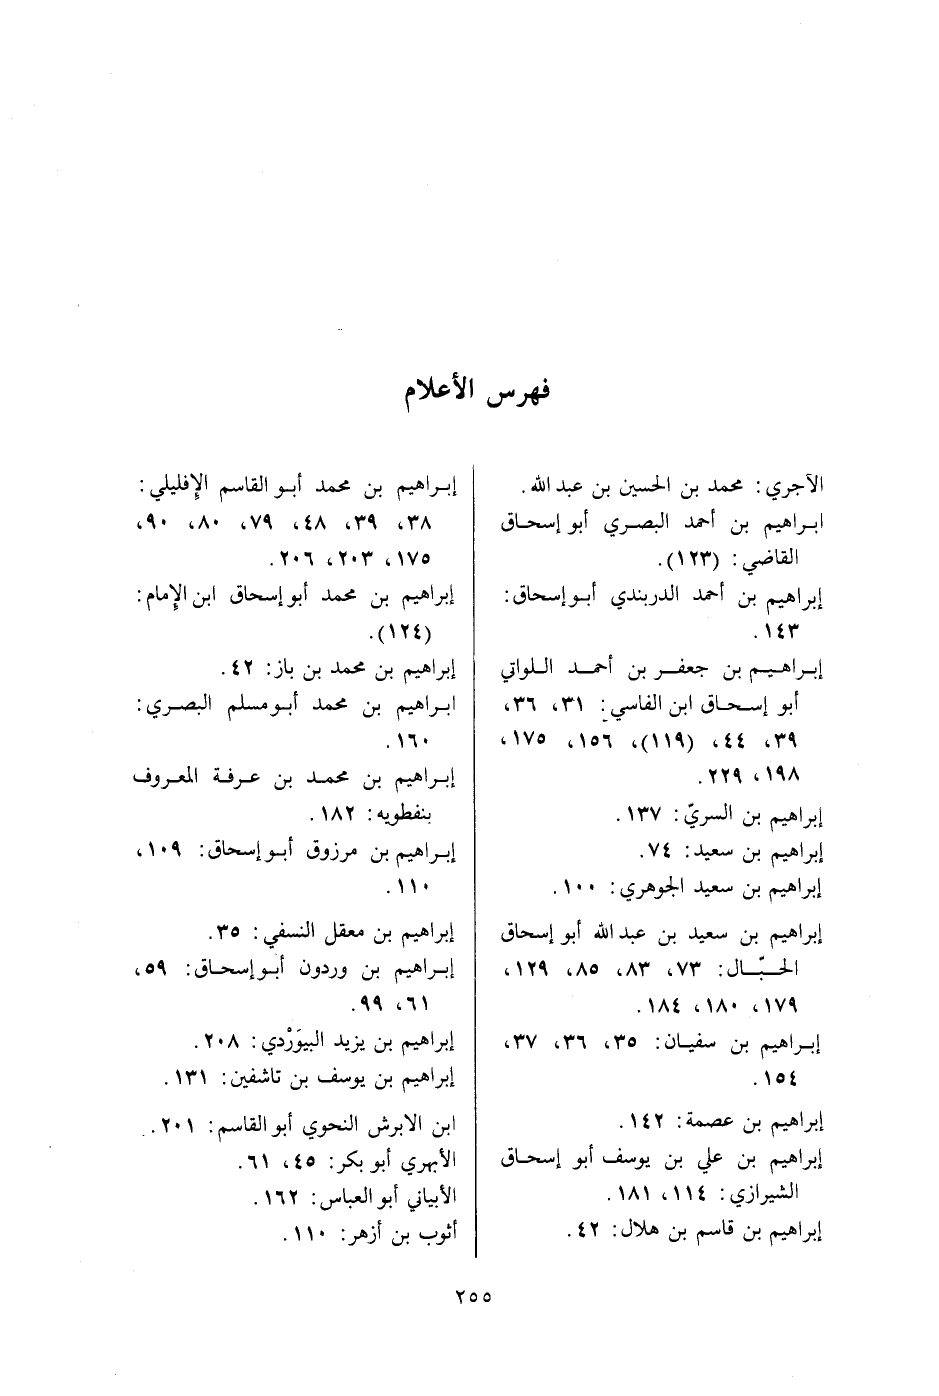 فهرس الأعلام
الآجري: محمد بن الحسين بن عبد الله.
ابراهيم بن أحمد البصري أبو إسحاق
القاضي: (١٢٣).
إبراهيم بن أحمد الدربندي أبو إسحاق:
١٤٣.
إبراهيم بن جعفر بن أحمد اللواتي
أبو إسحاق ابن الفاسي: ٣١، ٣٦،
٣٩، ٤٤، (١١٩)، ١٥٦، ١٧٥،
١٩٨، ٢٢٩.
إبراهيم بن السريّ: ١٣٧.
إبراهيم بن سعيد: ٧٤.
إبراهيم بن سعيد الجوهري: ١٠٠.
إبراهيم بن سعيد بن عبد الله أبو إسحاق
الحبّال: ٧٣، ٨٣، ٨٥، ١٢٩،
١٧٩، ١٨٠، ١٨٤.
إبراهيم بن سفيان: ٣٥، ٣٦، ٣٧،
١٥٤.
إبراهيم بن عصمة: ١٤٢.
إبراهيم بن علي بن يوسف أبو إسحاق
الشيرازي: ١١٤، ١٨١.
إبراهيم بن قاسم بن هلال: ٤٢.
إبراهيم بن محمد أبو القاسم الإفليلي:
٣٨، ٣٩، ٤٨، ٧٩، ٨٠، ٩٠،
١٧٥، ٢٠٣، ٢٠٦.
إبراهيم بن محمد أبو إسحاق ابن الإمام:
(١٢٤).
إبراهيم بن محمد بن باز: ٤٢.
ابراهيم بن محمد أبو مسلم البصري:
١٦٠.
إبراهيم بن محمد بن عرفة المعروف
بنفطويه: ١٨٢.
إبراهيم بن مرزوق أبو إسحاق: ١٠٩،
١١٠.
إبراهيم بن معقل النسفي: ٣٥.
إبراهيم بن وردون أبو إسحاق: ٥٩،
٦١، ٩٩.
إبراهيم بن يزيد البيوَرْدي: ٢٠٨.
إبراهيم بن يوسف بن تاشفين: ١٣١.
ابن الابرش النحوي أبو القاسم: ٢٠١.
الأبهري أبو بكر: ٤٥، ٦١.
الأبياني أبو العباس: ١٦٢.
أثوب بن أزهر: ١١٠.
٢٥٥